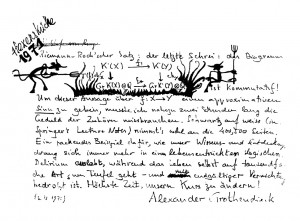 Hexenküche
1971
Riemann-Roch'scher Satz: der letzte Schrei: das Diagramm
K˙(X) → K˙(Y)
ist kommutatif!
Um dieser Aussage über f: X→Y einen approximativen
Sinn zu geben, musste ich nahezu zwei Stunden lang die
Geduld der Zuhörer missbrauchen. Schwarz auf weiss (in
Springer's Lecture Notes) nimmt's wohl an die 400, 500 Seiten.
Ein packendes Beispiel dafür, wie unser Wissens- und Entdeckungs
drang sich immer mehr in einem lebensentrückten logischen
Delirium auslebt, während das Leben selbst auf tausendfa
che Art zum Teufel geht - und mit endgültiger Vernichtung
bedroht ist. Höchste Zeit, unsern Kurs zu ändern!
Alexander Grothendieck